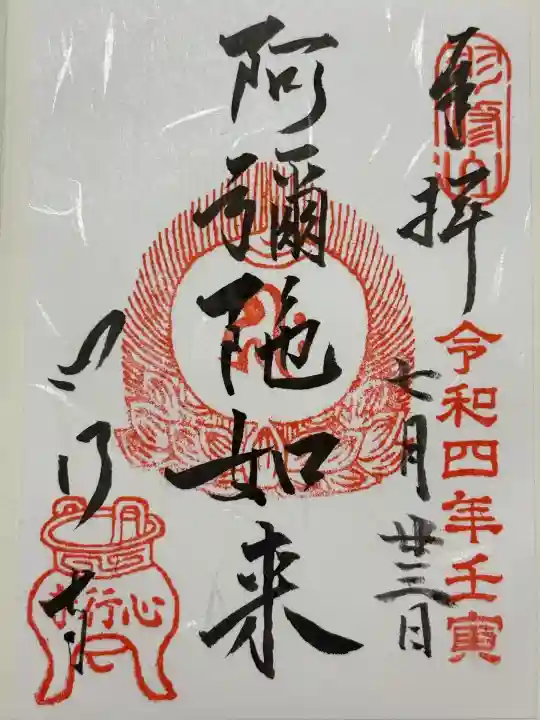 奉拝
令和四年壬寅
七月廿三日
阿彌陀如来
行心